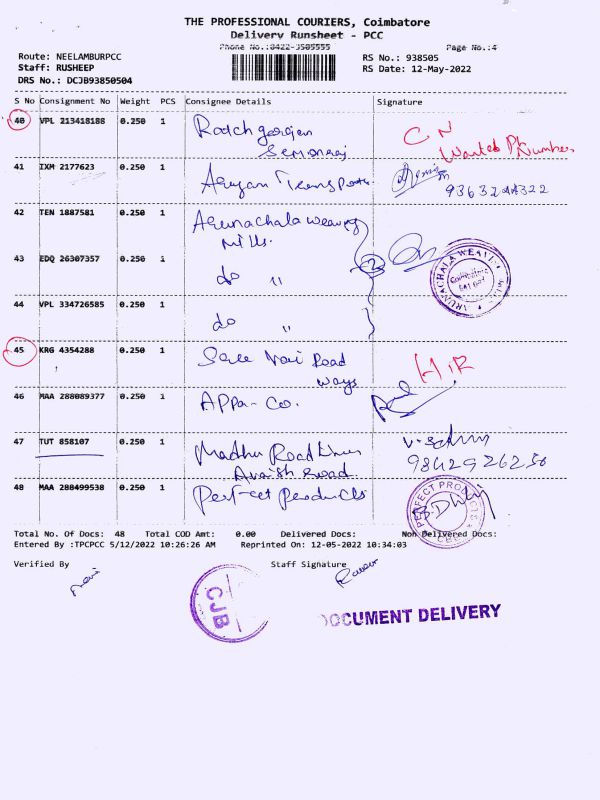 THE PROFESSIONAL COURIERS, Coimbatore
Delivery Runsheet - PCC
Phone No.:0422-3505555
Page No.:4
Route: NEELAMBURPCC
RS No.: 938505
Staff: RUSHEEP
RS Date: 12-May-2022
DRS No.: DCJB93850504
S No Consignment No Weight PCS Consignee Details Signature
40 VPL 213418188 0.250 1
CN
Wanted Ph number
41 IXM 2177623 0.250 1 Aryan Transports
9363244322
42 TEN 1887581 0.250 1 Arunachala weaving
mills.
43 EDQ 26307357 0.250 1 do "
ARUNACHALA WEAVING MILLS
44 VPL 334726585 0.250 1 do "
45 KRG 4354288 0.250 1 Sree Road
ways
46 MAA 288089377 0.250 1 APPa-Co.
47 TUT 858107 0.250 1 Madhu Road lines
Avinashi road
9842926256
48 MAA 288499538 0.250 1 Perfect Products
PERFECT PRODUCTS
Total No. Of Docs: 48 Total COD Amt: 0.00 Delivered Docs: Non Delivered Docs:
Entered By :TPCPCC 5/12/2022 10:26:26 AM Reprinted On: 12-05-2022 10:34:03
Verified By Staff Signature
CJB
DOCUMENT DELIVERY